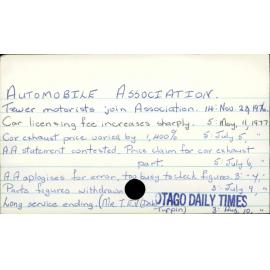 AUTOMOBILE ASSOCIATION.
Fewer motorists join Association. 14: Nov. 29, 1976.
Car licensing fee increases sharply. 5: May, 11, 1977
Car exhaust price varied by 1,400% 5: July 5, "
A.A statement contested. Price claim for car exhaust
part. 5: July 6, "
A.A apologises for error, too busy to check figures. 3: " 7, "
Parts figures withdrawn 3: July 9, "
Long service ending. (Mr. T.E.V
Turpin) 3: Aug. 10, "
OTAGO DAILY TIMES